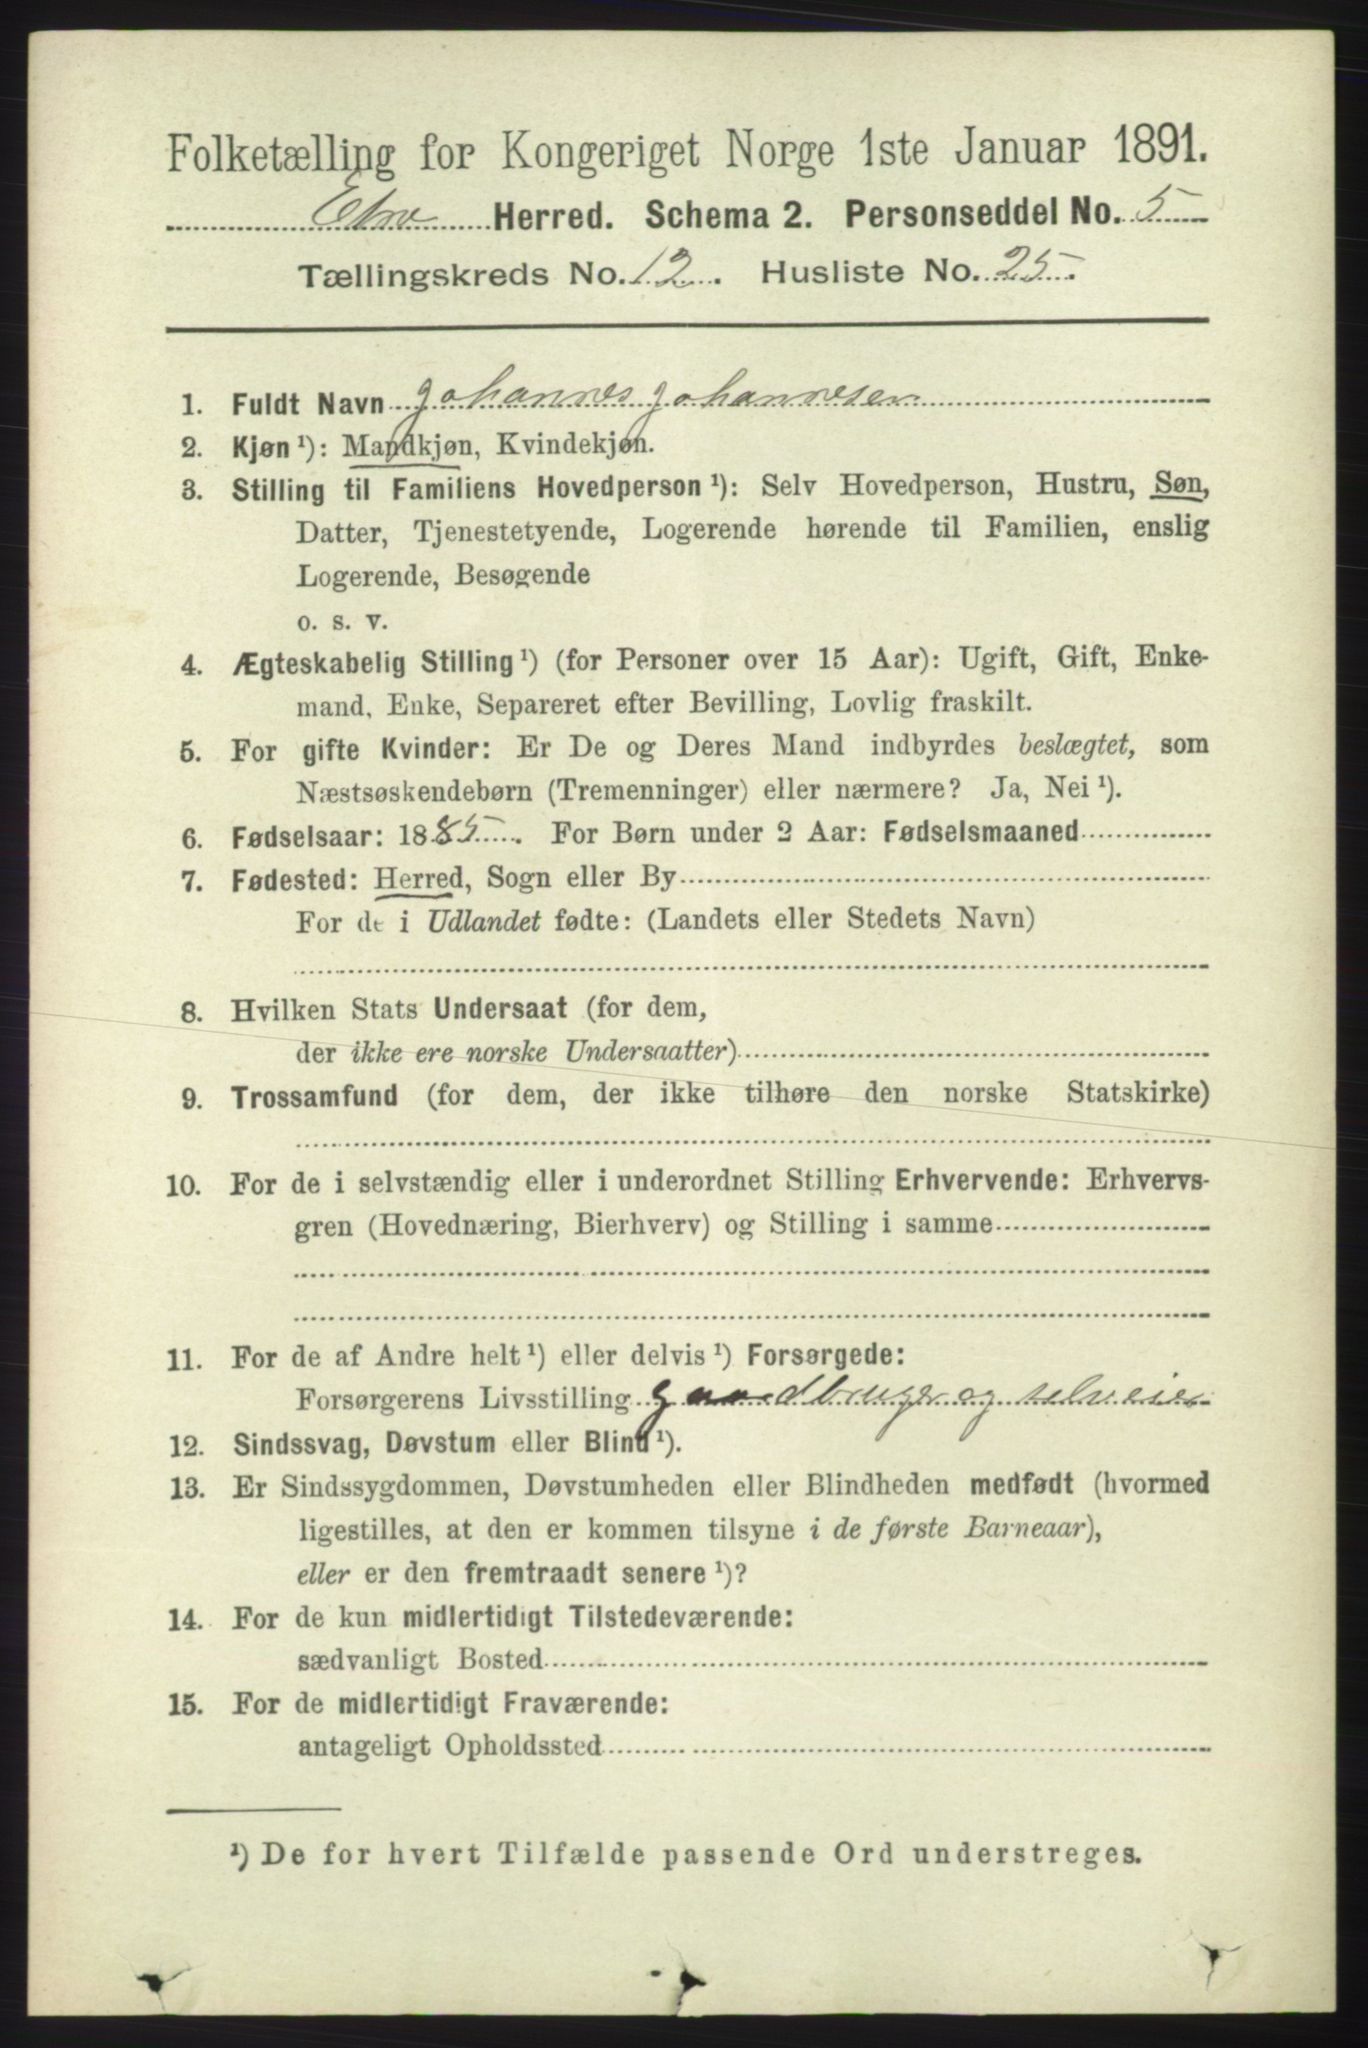 Folketælling for Kongeriget Norge 1ste Januar 1891.
Etne Herred. Schema 2. Personseddel No. 5
Tællingskreds No. 12. Husliste No. 25.
1. Fuldt Navn Johannes Johannesen
2. Kjøn¹): Mandkjøn, Kvindekjøn.
3. Stilling til Familiens Hovedperson¹): Selv Hovedperson, Hustru, Søn,
Datter, Tjenestetyende, Logerende hørende til Familien, enslig
Logerende, Besøgende
o. s. v.
4. Ægteskabelig Stilling¹) (for Personer over 15 Aar): Ugift, Gift, Enke-
mand, Enke, Separeret efter Bevilling, Lovlig fraskilt.
5. For gifte Kvinder: Er De og Deres Mand indbyrdes beslægtet, som
Næstsøskendebørn (Tremenninger) eller nærmere? Ja, Nei¹).
6. Fødselsaar: 1885. For Børn under 2 Aar: Fødselsmaaned
7. Fødested: Herred, Sogn eller By
For de i Udlandet fødte: (Landets eller Stedets Navn)
8. Hvilken Stats Undersaat (for dem,
der ikke ere norske Undersaatter)
9. Trossamfund (for dem, der ikke tilhøre den norske Statskirke)
10. For de i selvstændig eller i underordnet Stilling Erhvervende: Erhvervs-
gren (Hovednæring, Bierhverv) og Stilling i samme
11. For de af Andre helt¹) eller delvis¹) Forsørgede:
Forsørgerens Livsstilling gaardbruger og selveier
12. Sindssvag, Døvstum eller Blind¹).
13. Er Sindssygdommen, Døvstumheden eller Blindheden medfødt (hvormed
ligestilles, at den er kommen tilsyne i de første Barneaar),
eller er den fremtraadt senere¹)?
14. For de kun midlertidigt Tilstedeværende:
sædvanligt Bosted
15. For de midlertidigt Fraværende:
antageligt Opholdssted
¹) De for hvert Tilfælde passende Ord understreges.